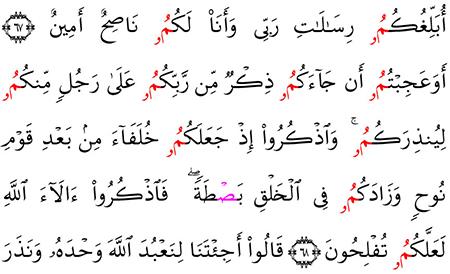 أُبَلِّغُكُمُۥ رِسَٰلَٰتِ رَبِّى وَأَنَا۠ لَكُمُۥ نَاصِحٌ أَمِينٌ ﴿٦٧﴾
أَوَعَجِبْتُمُۥ أَن جَآءَكُمُۥ ذِكْرٌ مِّن رَّبِّكُمُۥ عَلَىٰ رَجُلٍ مِّنكُمُۥ
لِيُنذِرَكُمُۥ ۚ وَٱذْكُرُوا۟ إِذْ جَعَلَكُمُۥ خُلَفَآءَ مِنۢ بَعْدِ قَوْمِ
نُوحٍ وَزَادَكُمُۥ فِى ٱلْخَلْقِ بَصْطَةً ۖ فَٱذْكُرُوا۟ ءَالَآءَ ٱللَّهِ
لَعَلَّكُمُۥ تُفْلِحُونَ ﴿٦٨﴾ قَالُوا۟ أَجِئْتَنَا لِنَعْبُدَ ٱللَّهَ وَحْدَهُۥ وَنَذَرَ